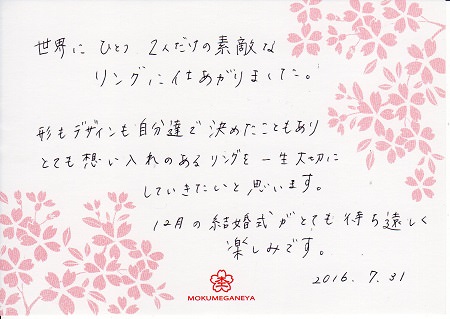 世界に ひとつ 2人だけの素敵な
リングに仕あがりました。
形もデザインも自分達で決めたこともあり
とても想い入れのあるリングを一生大切に
していきたいと思います。
12月の結婚式がとても待ち遠しく
楽しみです。
MOKUMEGANEYA
2016. 7. 31